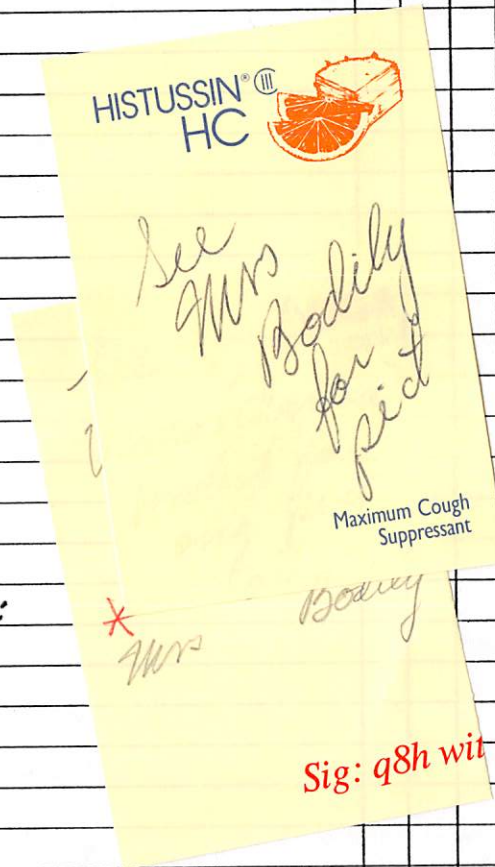 HISTUSSIN® CIII
HC
See
Mrs
Bodily
for
pict
Maximum Cough
Suppressant
*
Mrs Bodily
Sig: q8h wit